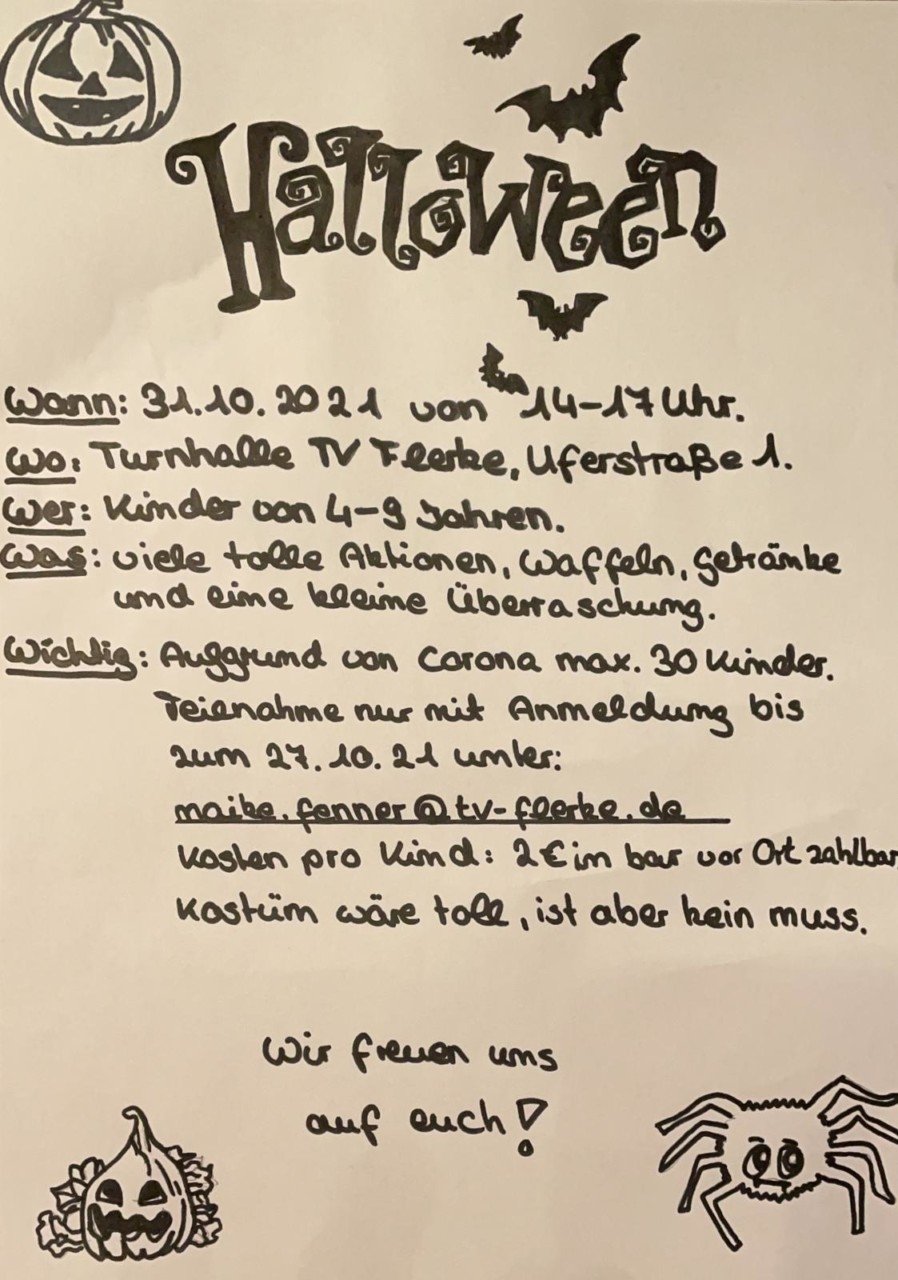 Halloween
Wann: 31.10.2021 von 14-17 Uhr.
Wo: Turnhalle TV Flerke, Uferstraße 1.
Wer: Kinder von 4-9 Jahren.
Was: viele tolle Aktionen, Waffeln, Getränke
und eine kleine Überraschung.
Wichtig: Aufgrund von Corona max. 30 Kinder.
Teilnahme nur mit Anmeldung bis
zum 27.10.21 unter:
maike.fenner@tv-flerke.de
Kosten pro Kind: 2€ im bar vor Ort zahlbar,
Kostüm wäre toll, ist aber kein muss.
Wir freuen uns
auf euch!